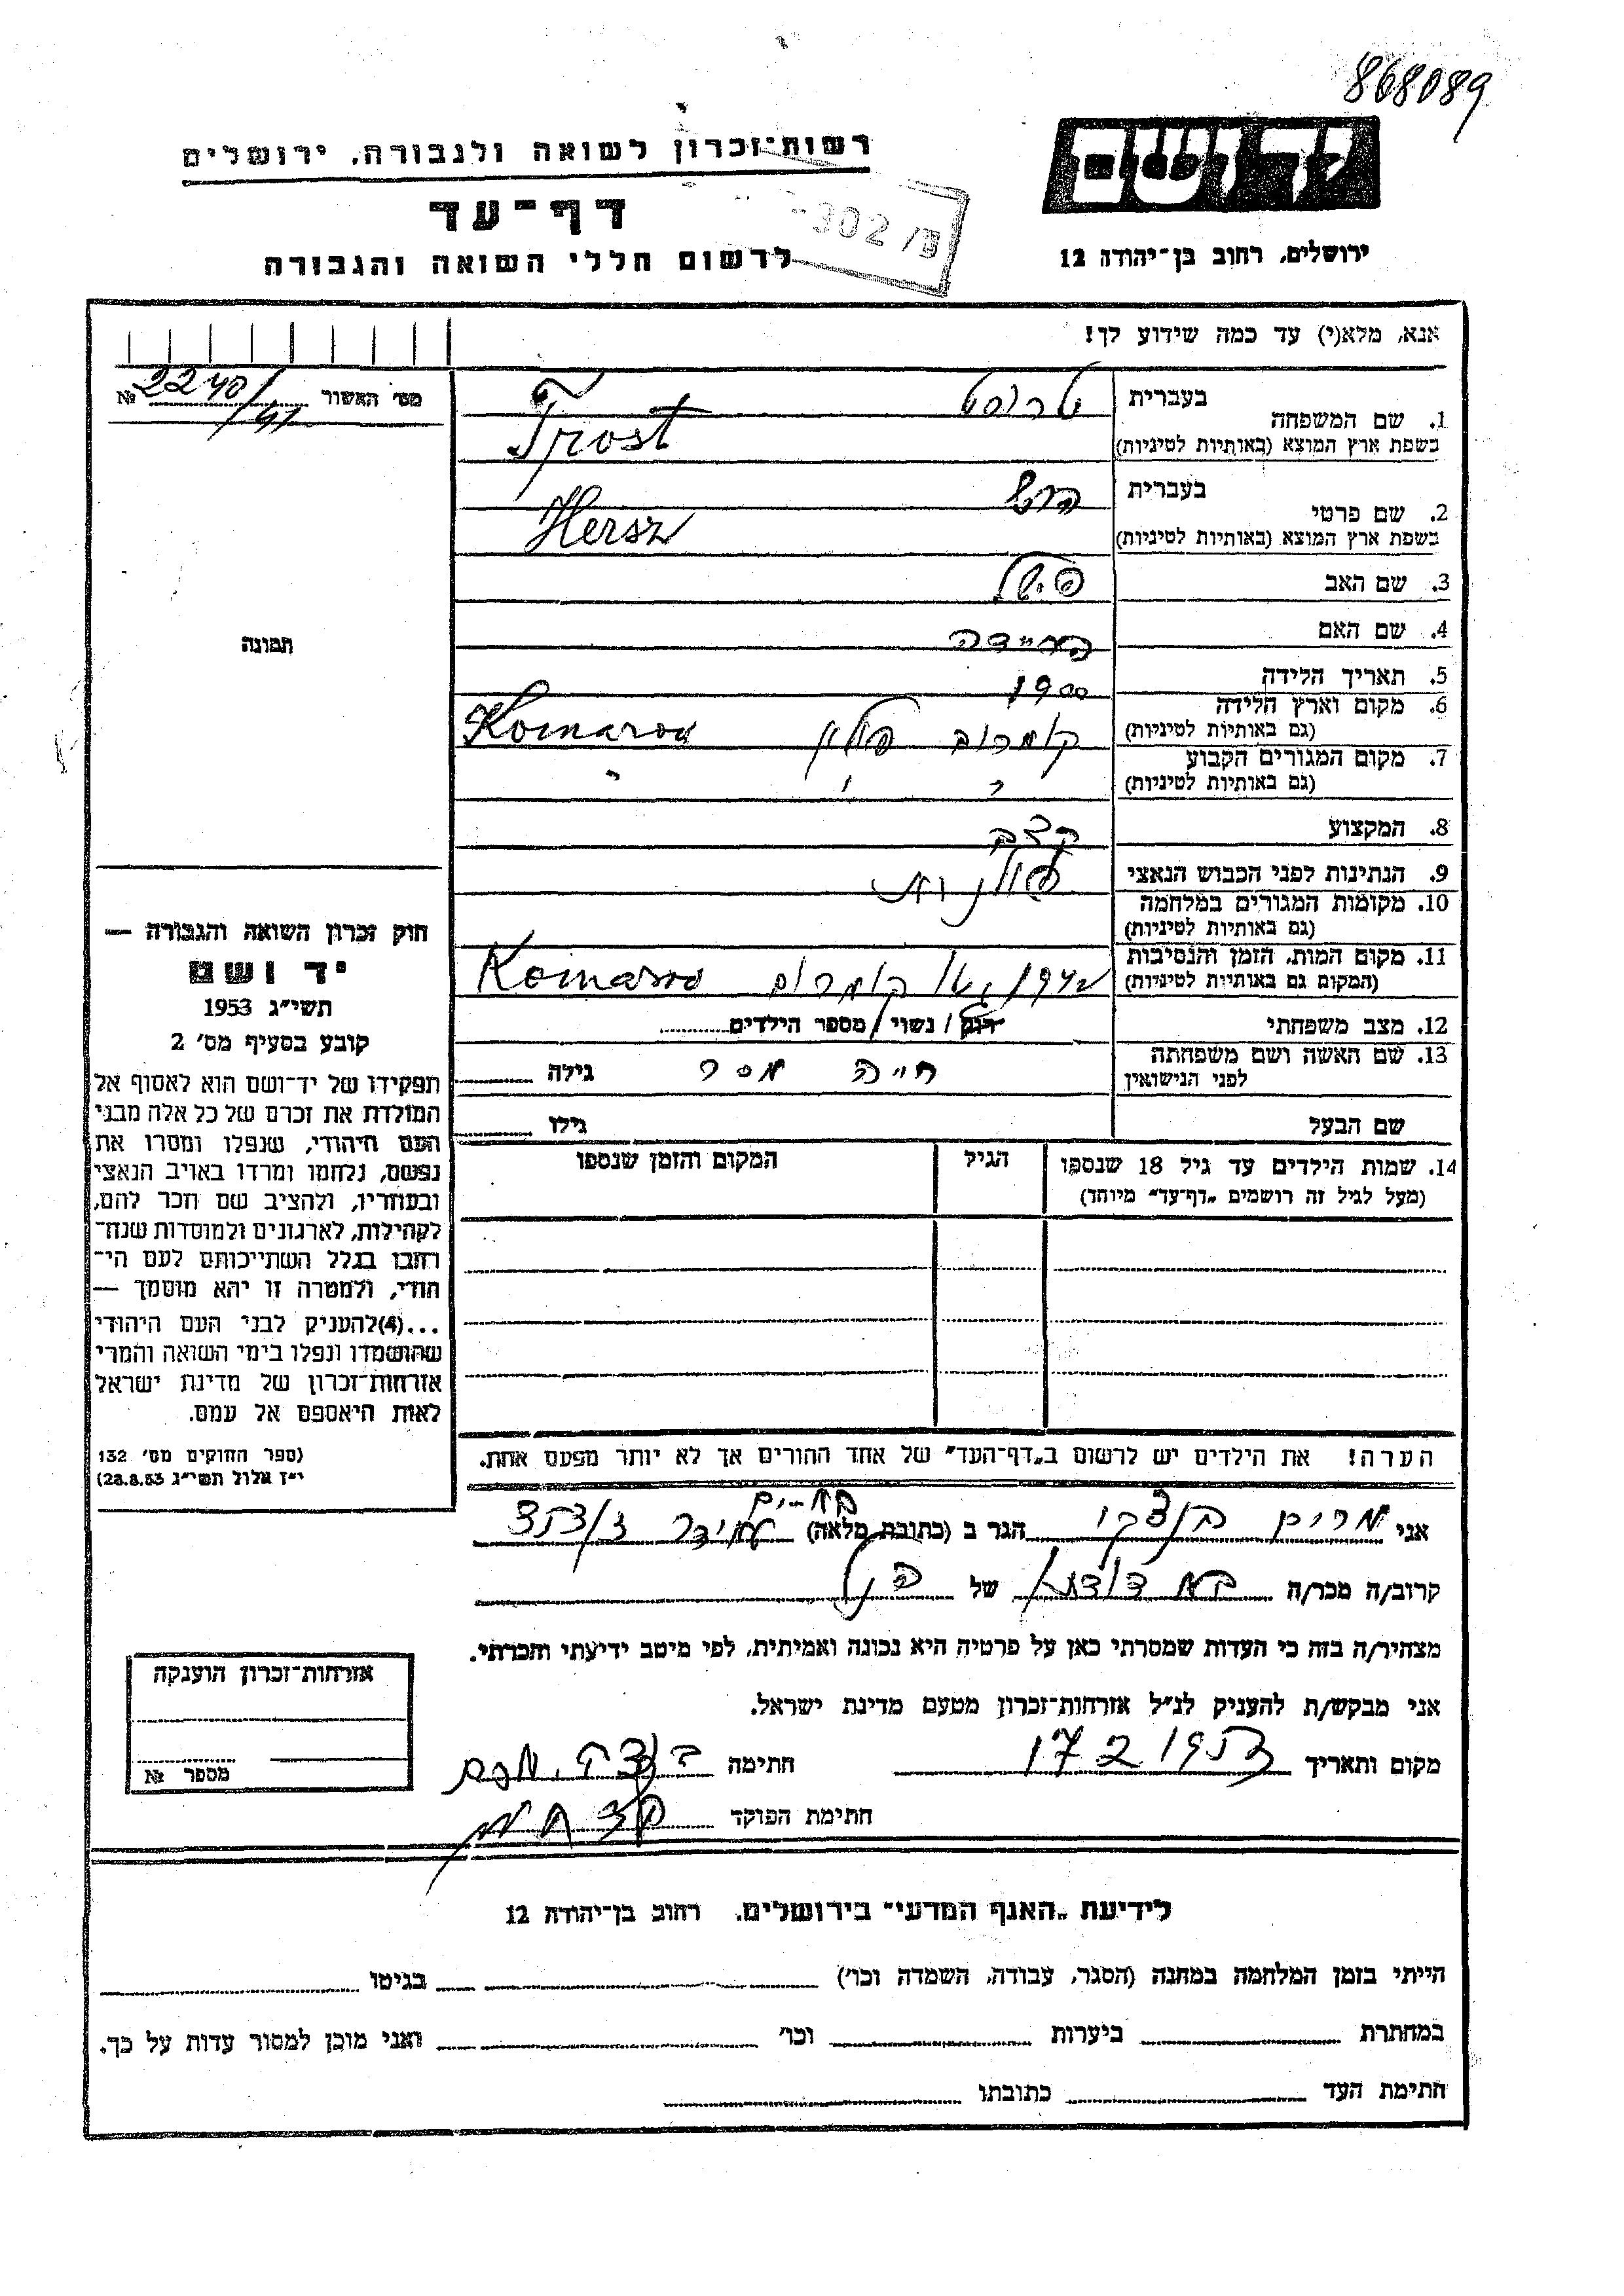 868089
רשות־זכרון לשואה ולגבורה, ירושלים
יד ושם
דף־עד
302/מ
לרשום חללי השואה והגבורה
ירושלים, רחוב בן־יהודה 12
אנא, מלא(י) עד כמה שידוע לך!
מס׳ האשור 2240/41 №
1. שם המשפחה
בעברית טרוסט
בשפת ארץ המוצא (באותיות לטיניות) Trost
2. שם פרטי
בעברית הרש
בשפת ארץ המוצא (באותיות לטיניות) Hersz
3. שם האב פישל
4. שם האם
תמונה
5. תאריך הלידה 1900
6. מקום וארץ הלידה
(גם באותיות לטיניות) קומרוב פולין Komarow
7. מקום המגורים הקבוע
(גם באותיות לטיניות) " " "
8. המקצוע קצב
9. הנתינות לפני הכבוש הנאצי פולנית
10. מקומות המגורים במלחמה
(גם באותיות לטיניות)
11. מקום המות, הזמן והנסיבות
(המקום גם באותיות לטיניות) 1942 Komarow
12. מצב משפחתי רווק / נשוי / מספר הילדים
13. שם האשה ושם משפחתה
לפני הנישואין חיה מסר גילה
שם הבעל גילו
14. שמות הילדים עד גיל 18 שנספו
(מעל לגיל זה רושמים „דף־עד״ מיוחד)
הגיל
המקום והזמן שנספו
חוק זכרון השואה והגבורה —
יד ושם
תשי״ג 1953
קובע בסעיף מס׳ 2
תפקידו של יד־ושם הוא לאסוף אל
המולדת את זכרם של כל אלה מבני
העם היהודי, שנפלו ומסרו את
נפשם, נלחמו ומרדו באויב הנאצי
ובעוזריו, ולהציב שם וזכר להם,
לקהילות, לארגונים ולמוסדות שנח־
רבו בגלל השתייכותם לעם הי־
הודי, ולמטרה זו יהא מוסמך —
...(4)להעניק לבני העם היהודי
שהושמדו ונפלו בימי השואה והמרי
אזרחות־זכרון של מדינת ישראל
לאות היאספם אל עמם.
(ספר החוקים מס׳ 132
י״ז אלול תשי״ג 28.8.53)
הערה! את הילדים יש לרשום ב„דף־העד״ של אחד ההורים אך לא יותר מפעם אחת.
אני מרים הגר ב (כתובת מלאה)
קרוב/ה מכר/ה בת דודתו של הנ״ל
מצהיר/ה בזה כי העדות שמסרתי כאן על פרטיה היא נכונה ואמיתית, לפי מיטב ידיעתי והכרתי.
אני מבקש/ת להעניק לנ״ל אזרחות־זכרון מטעם מדינת ישראל.
מקום ותאריך 17 2 1957 חתימה
חתימת הפוקד
אזרחות־זכרון הוענקה
מספר №
לידיעת „האגף המדעי״ בירושלים, רחוב בן־יהודה 12
הייתי בזמן המלחמה במחנה (הסגר, עבודה, השמדה וכו׳) בגיטו
במחתרת ביערות וכו׳ ואני מוכן למסור עדות על כך.
חתימת העד כתובתו